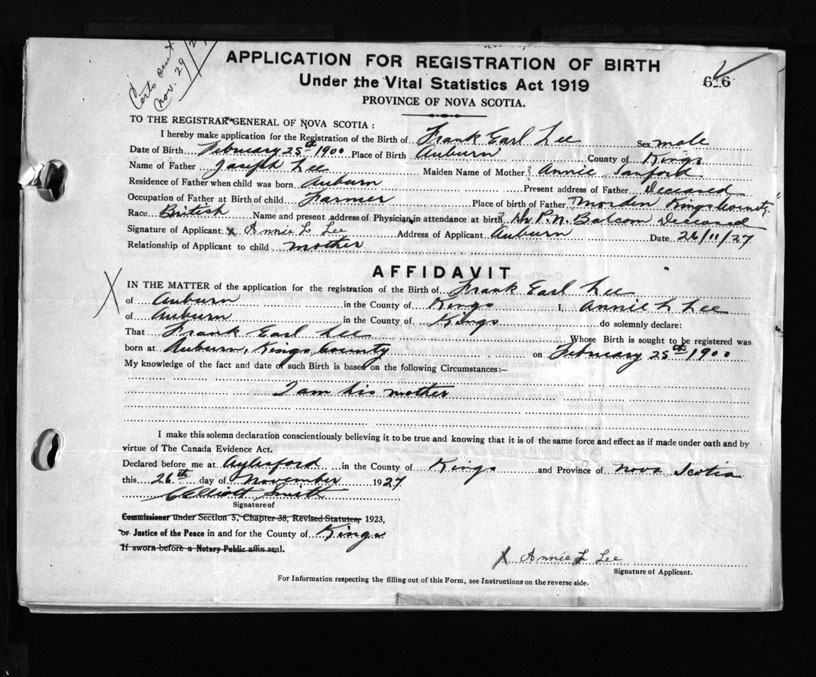 Certs sent
Nov. 29/27
APPLICATION FOR REGISTRATION OF BIRTH
Under the Vital Statistics Act 1919
626
PROVINCE OF NOVA SCOTIA.
TO THE REGISTRAR GENERAL OF NOVA SCOTIA :
I hereby make application for the Registration of the Birth of Frank Earl Lee Sex male
Date of Birth February 25th 1900 Place of Birth Auburn County of Kings
Name of Father Joseph Lee Maiden Name of Mother Annie Sanford
Residence of Father when child was born Auburn Present address of Father Deceased
Occupation of Father at Birth of child Farmer Place of birth of Father Morden Kings County
Race British Name and present address of Physician in attendance at birth Dr P. N. Balcom Deceased
Signature of Applicant x Annie L Lee Address of Applicant Auburn Date 26/11/27
Relationship of Applicant to child mother
AFFIDAVIT
X IN THE MATTER of the application for the registration of the Birth of Frank Earl Lee
of Auburn in the County of Kings I, Annie L Lee
of Auburn in the County of Kings do solemnly declare:
That Frank Earl Lee Whose Birth is sought to be registered was
born at Auburn, Kings County on February 25th 1900
My knowledge of the fact and date of such Birth is based on the following Circumstances:—
I am his mother
I make this solemn declaration conscientiously believing it to be true and knowing that it is of the same force and effect as if made under oath and by
virtue of The Canada Evidence Act.
Declared before me at Aylesford in the County of Kings and Province of Nova Scotia
this 26th day of November 1927
Elliott Smith
Signature of
Commissioner under Section 5, Chapter 38, Revised Statutes, 1923,
or Justice of the Peace in and for the County of Kings
If sworn before a Notary Public affix seal.
X Annie L Lee
Signature of Applicant.
For Information respecting the filling out of this Form, see Instructions on the reverse side.